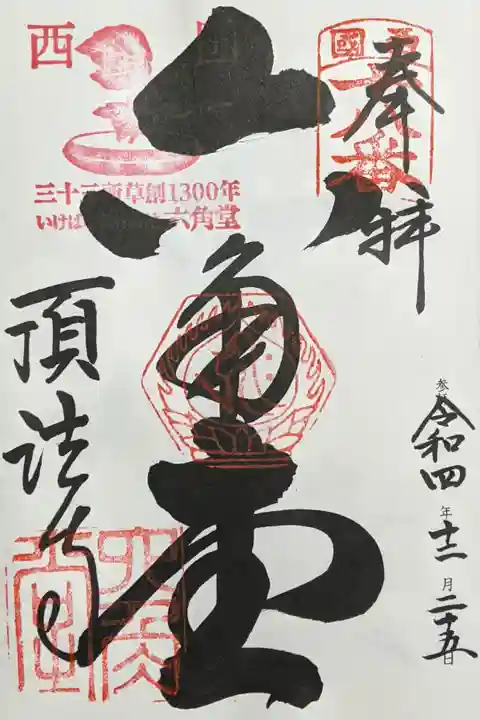 奉拝
参拝
令和四年十二月二十五日
六角堂
西国
三十三所草創1300年
いけばな
六角堂
頂法寺
六角堂